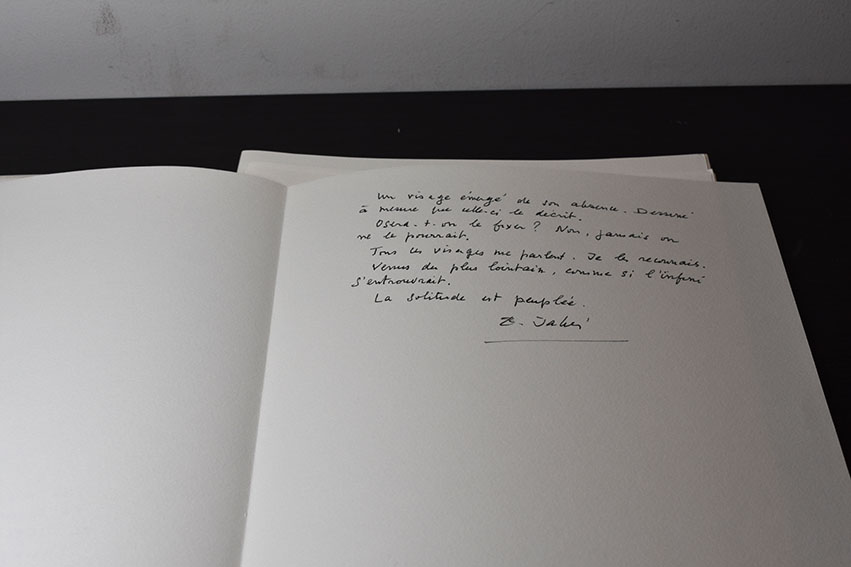 Un visage émergé de son absence. Dessiné
à mesure que celle-ci le décrit.
Osera-t-on le fixer ? Non, jamais on
ne le pourrait.
Tous ces visages me parlent. Je les reconnais.
Venus du plus lointain, comme si l'infini
s'entrouvrait.
La solitude est peuplée.